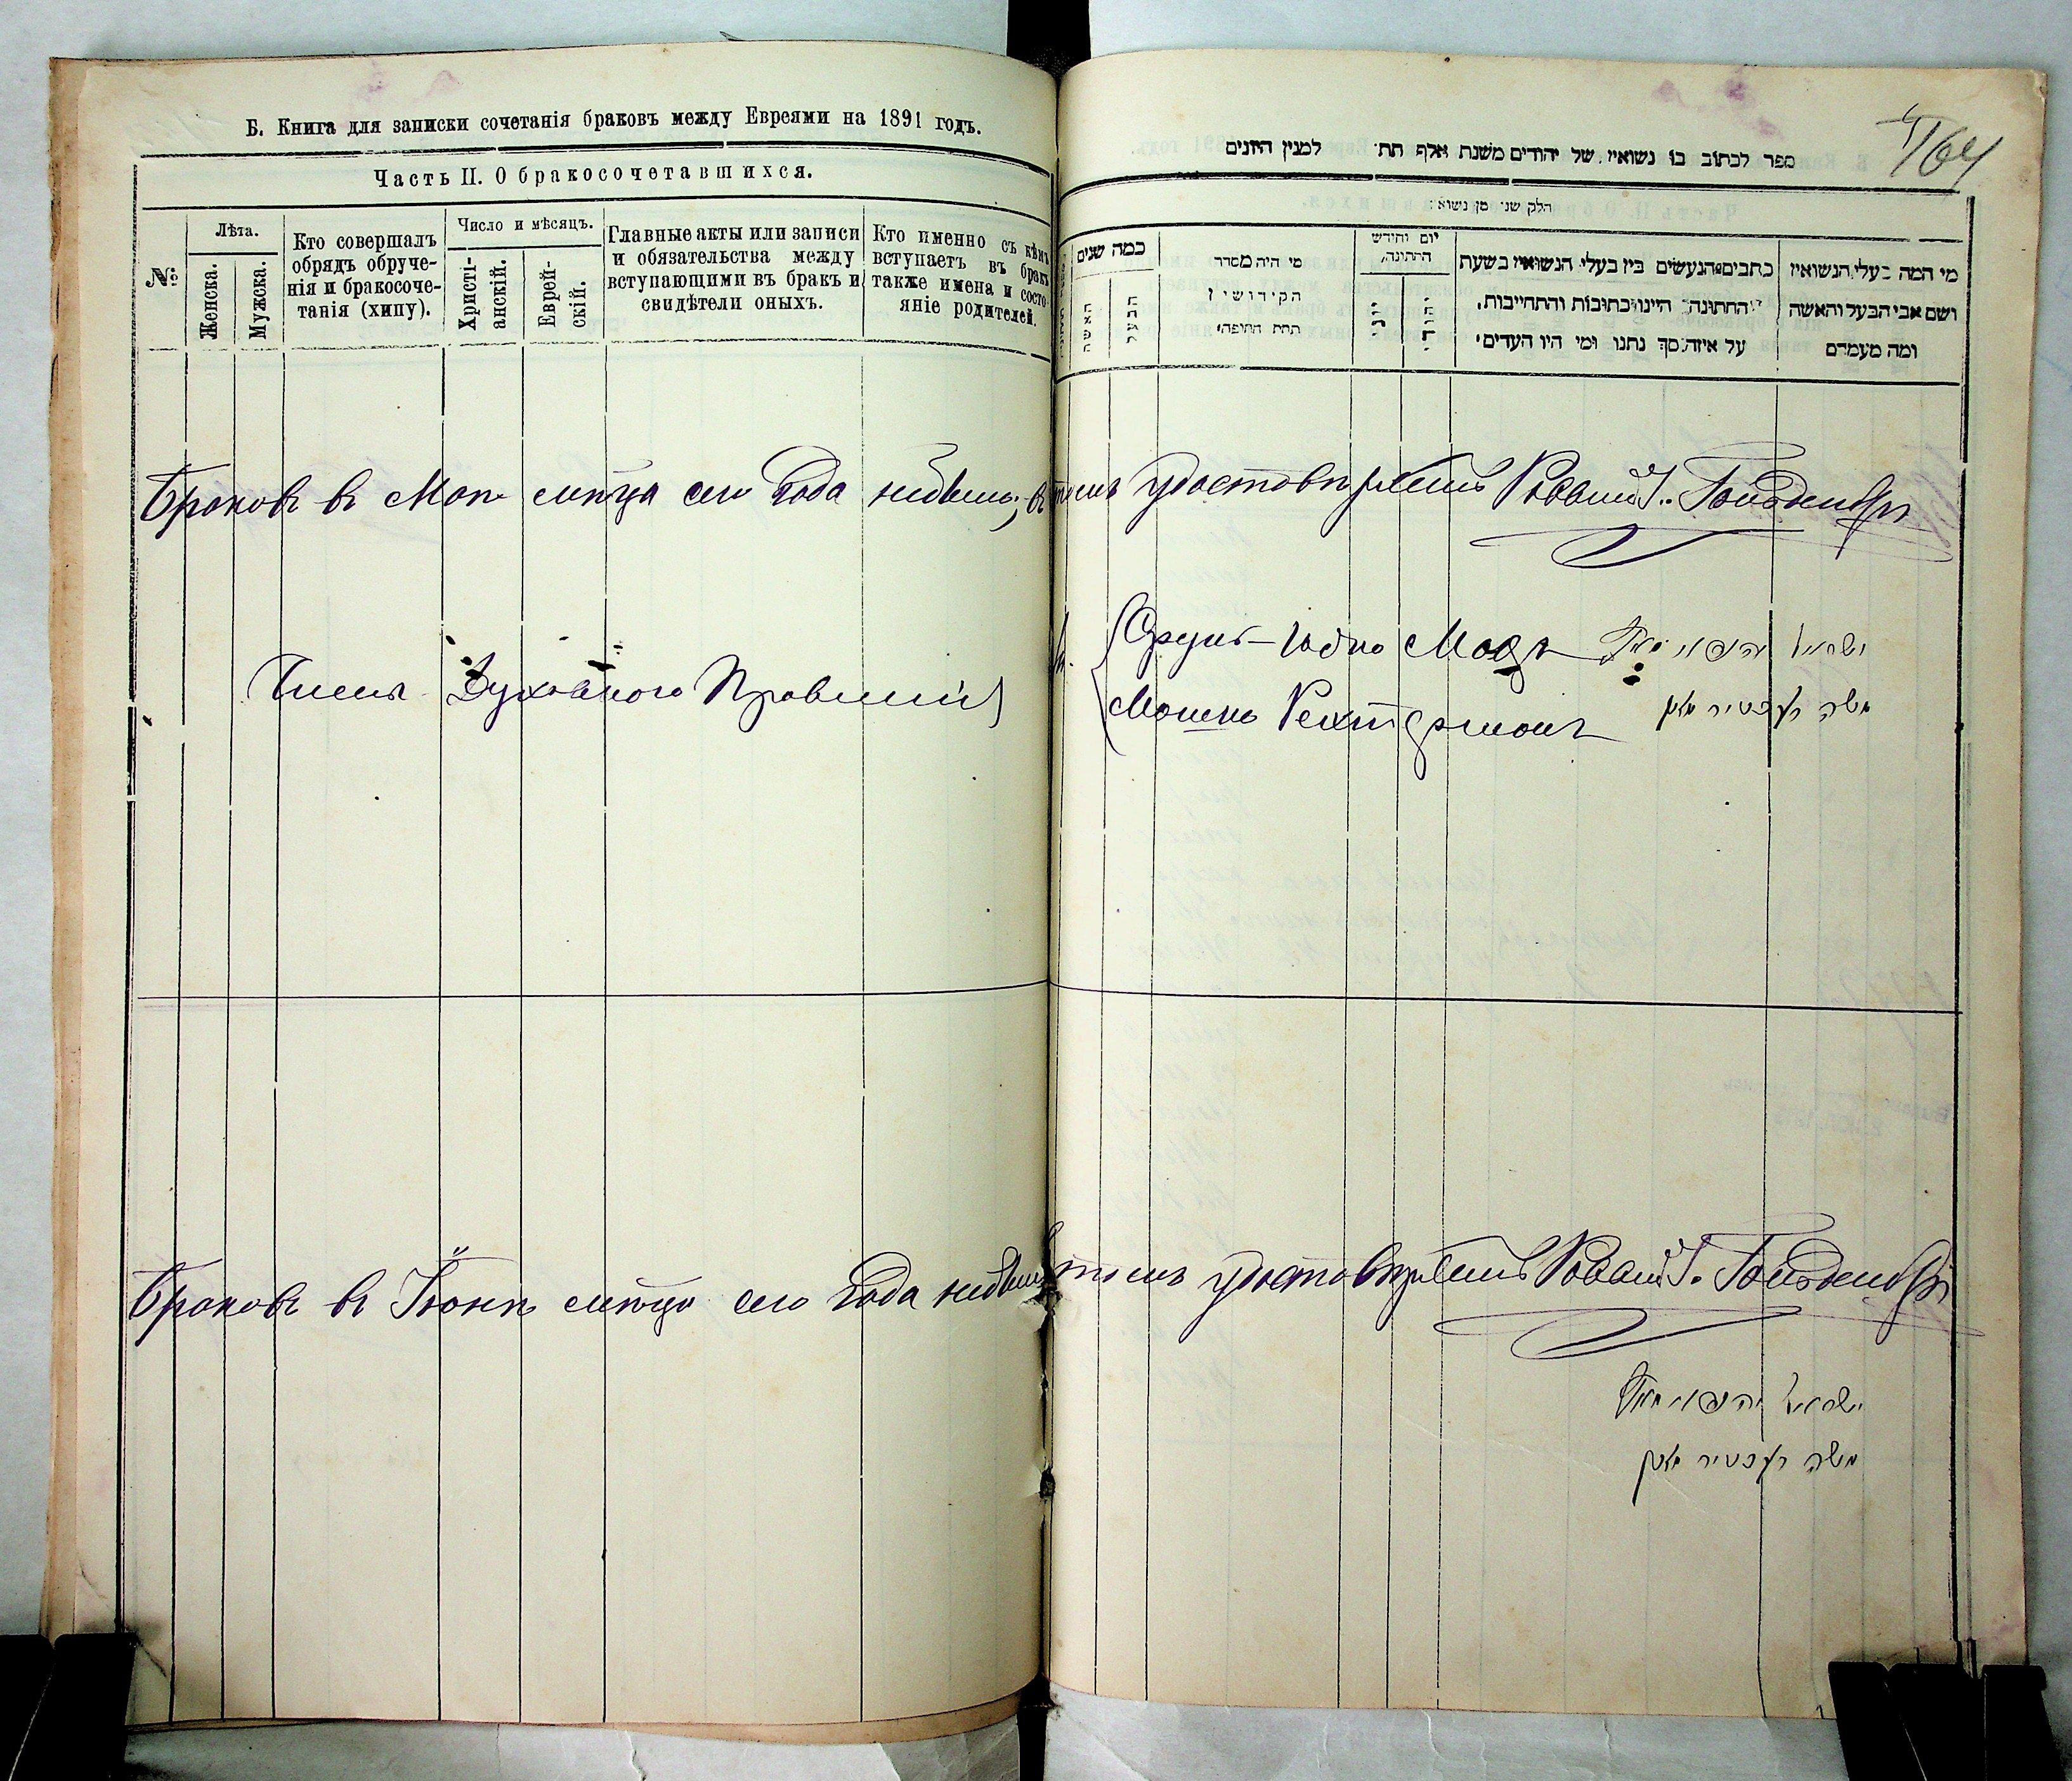 Б. Книга для записки сочетанія браковъ между Евреями на 1891 годъ.
Часть II. О бракосочетавшихся.
№
Лѣта.
Женска.
Мужска.
Кто совершалъ
обрядъ обруче-
нія и бракосоче-
танія (хипу).
Число и мѣсяцъ.
Христі-
анскій.
Еврей-
скій.
Главные акты или записи
и обязательства между
вступающими въ бракъ и
свидѣтели оныхъ.
Кто именно съ кѣмъ
вступаетъ въ бракъ
также имена и состо-
яніе родителей.
164
ספר לכתוב בו נשואין של יהודים משנת אלף תת׳ למנין היונים
חלק שני מן נשואי׳
כמה שנים
האשה
הבעל
מי היה מסדר
הקידושין
תחת החופה׳
יום וחודש
החתונה׳
יוני
יהודי
כתבים הנעשים בין בעלי הנשואין בשעת
החתונה׳ היינו כתובות והתחייבות,
על איזה סך נתנו ומי היו העדים׳
מי המה בעלי הנשואין
ושם אבי הבעל והאשה
ומה מעמדם
Браковъ въ Маѣ мѣсяца сего года небыло; въ томъ удостовѣряетъ Раввинъ Г. Гольденбергъ
Члены Духовного Правленія
Мошко Рехтерманъ
ישראל
משה
Браковъ въ Іюнѣ мѣсяца сего года небыло въ томъ удостовѣряетъ Раввинъ Г. Гольденбергъ
ישראל
משה